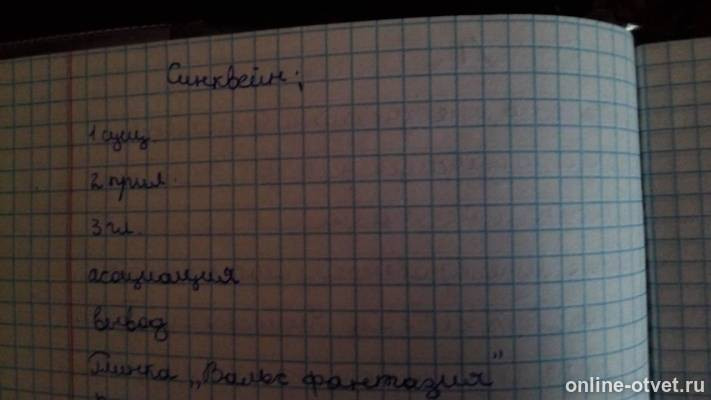 Синквейн:
1 сущ.
2 прил.
3 гл.
асоциация
вывод
Глинка „Вальс фантазия"
online-otvet.ru